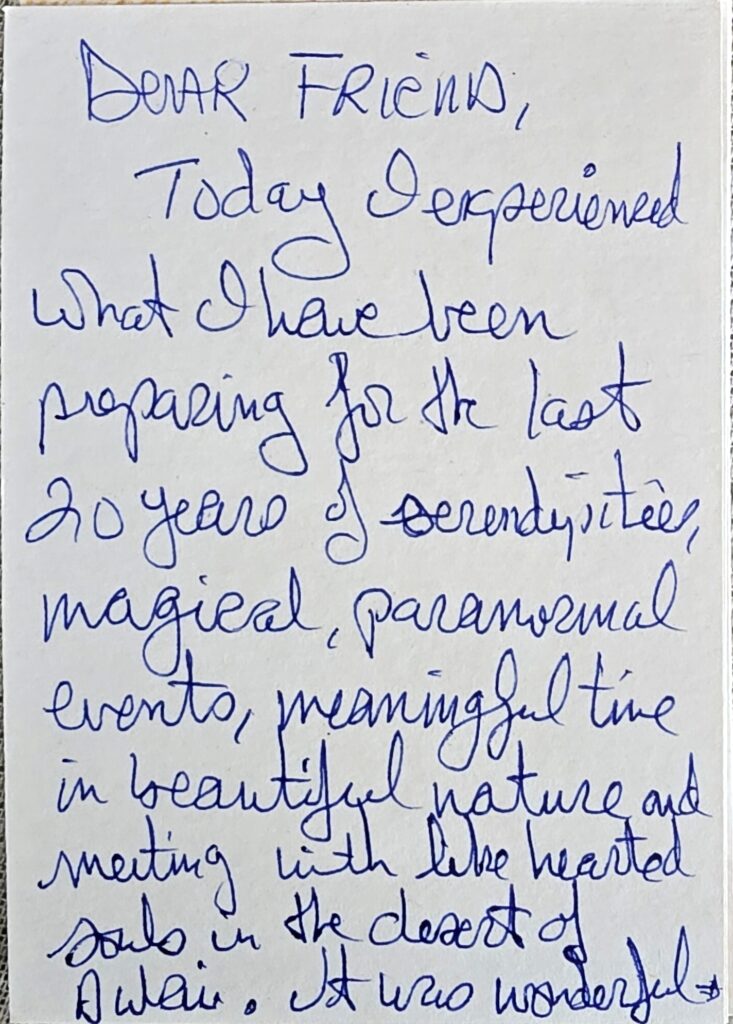 DEAR FRIEND,
Today I experienced
what I have been
preparing for the last
20 years of serendipities,
magical, paranormal
events, meaningful time
in beautiful nature and
meeting with like hearted
souls in the desert of
. It was wonderful→